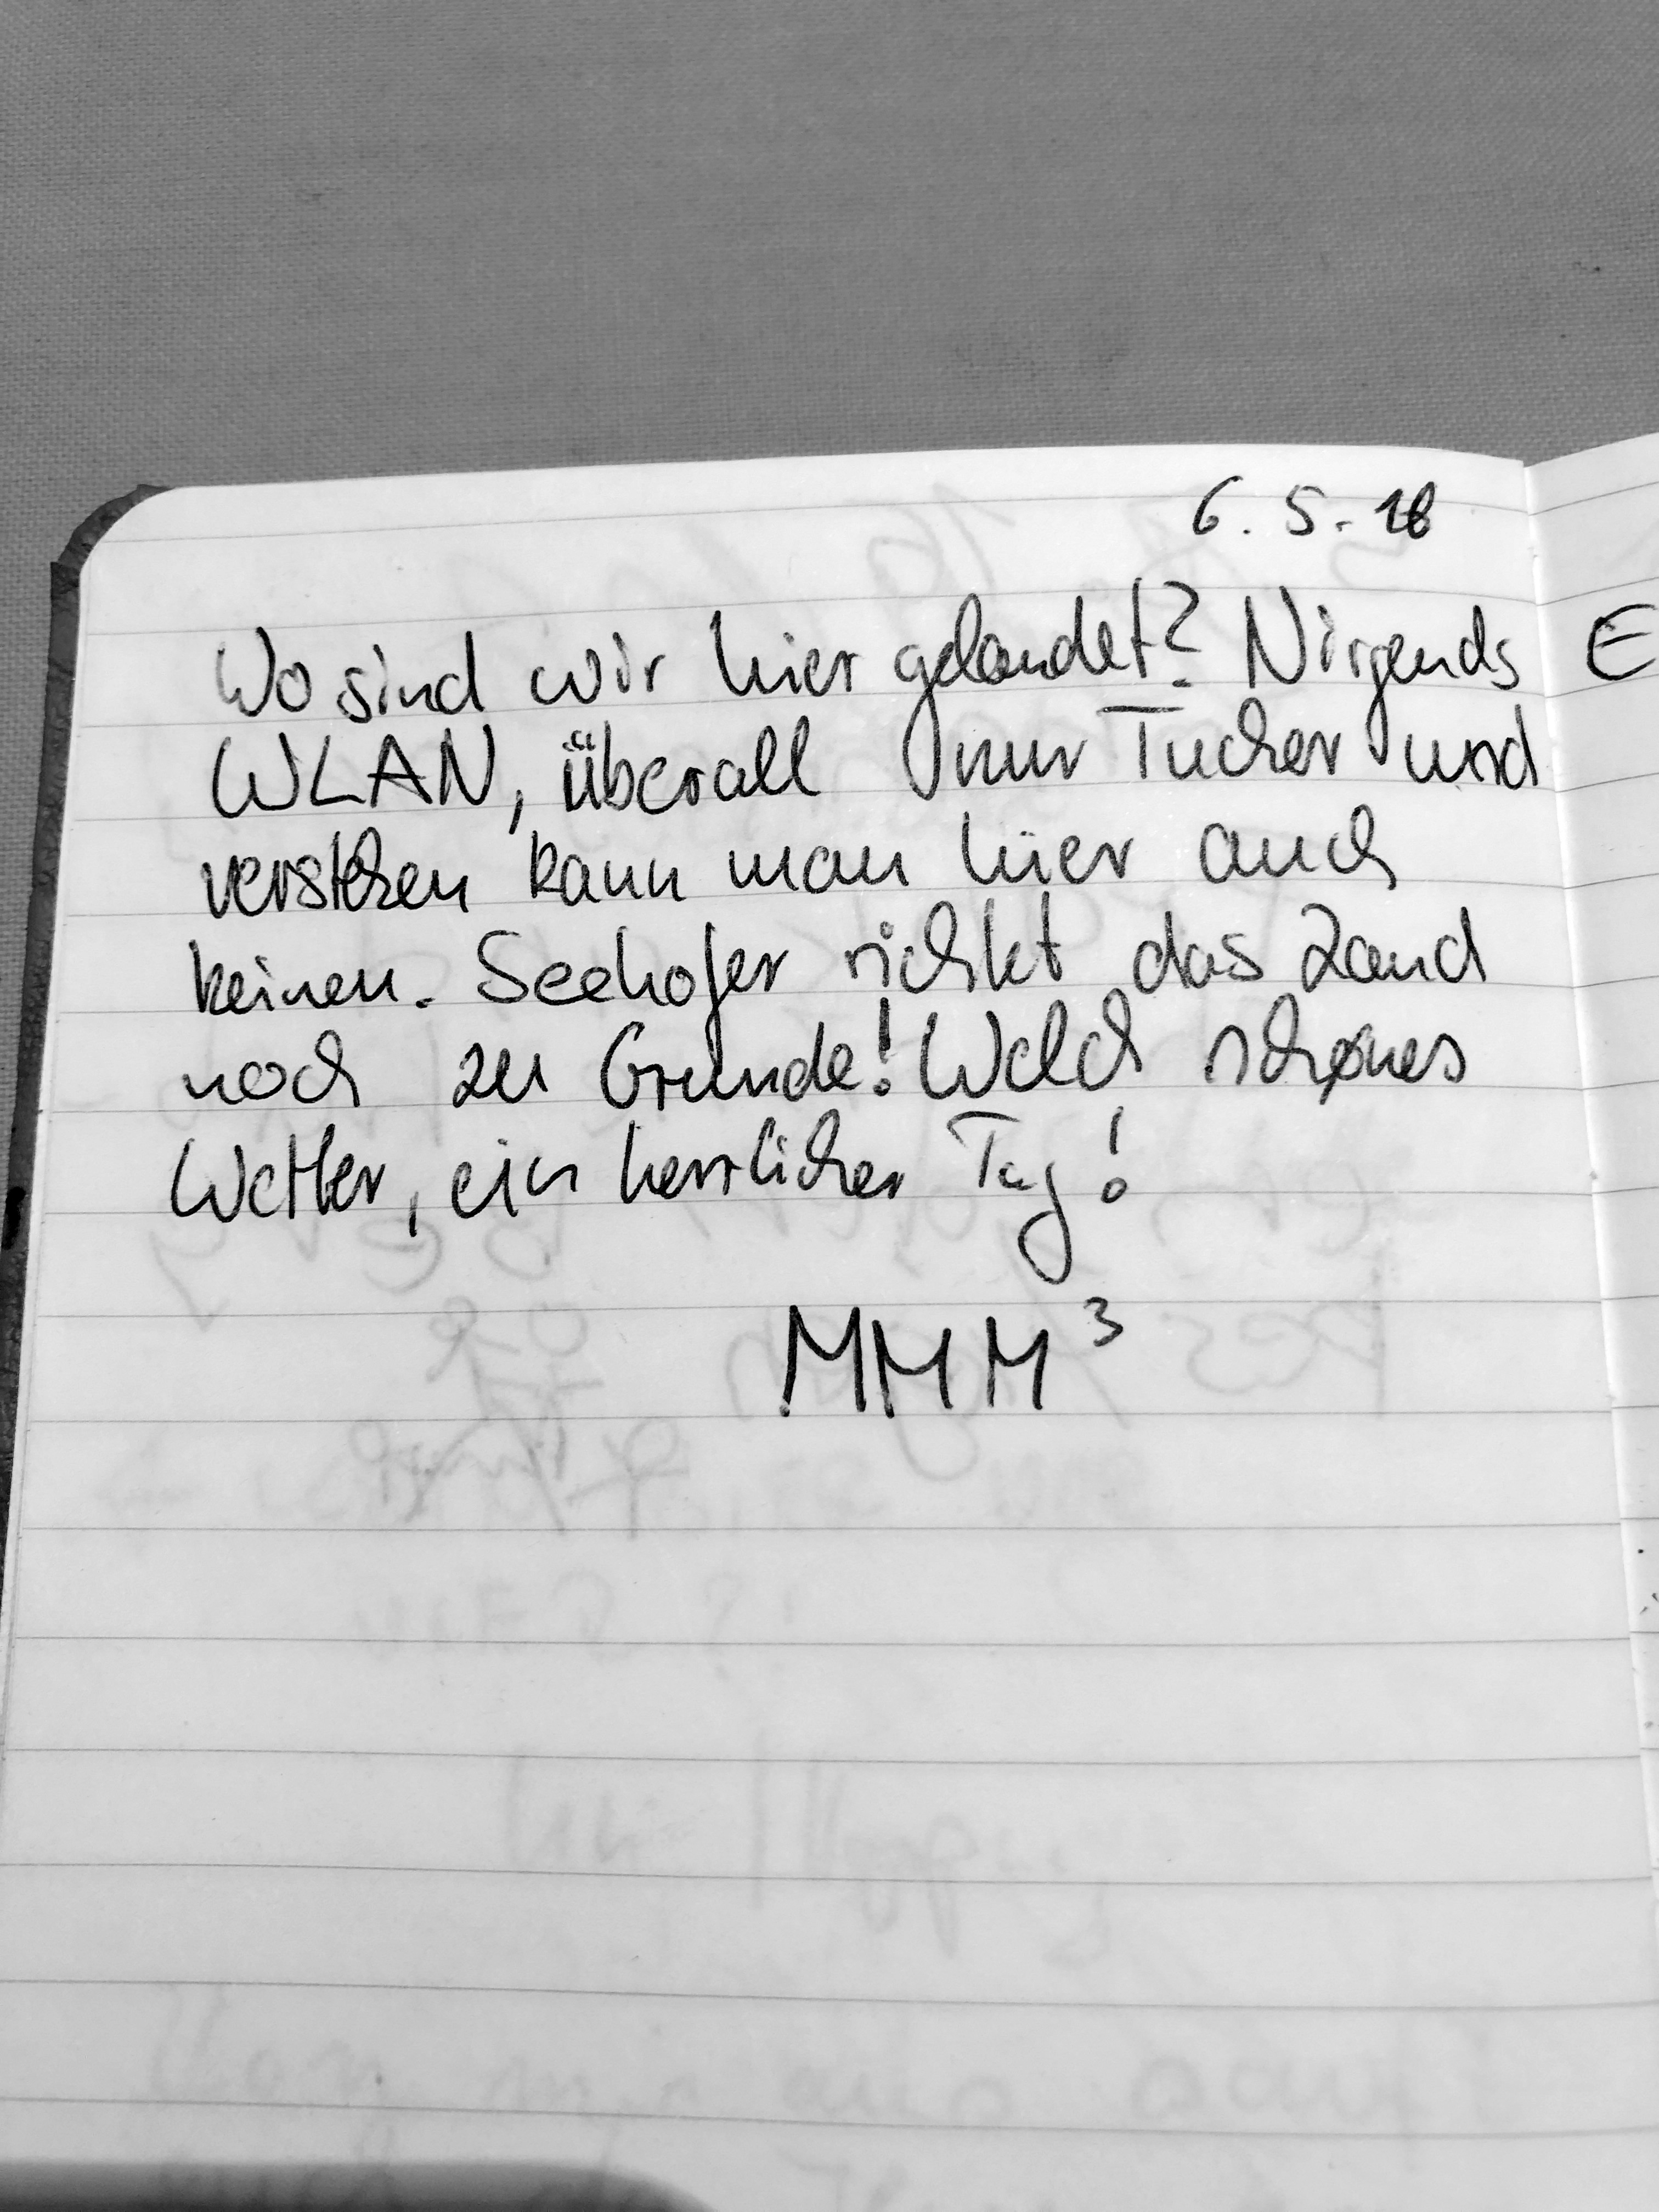 6. 5. 18
Wo sind wir hier gelandet? Nirgends
WLAN, überall nur Tucher und
verstehen kann man hier auch
keinen. Seehofer richtet das Land
noch zu Grunde! Welch schönes
Wetter, ein herrlicher Tag!
MMM³
E